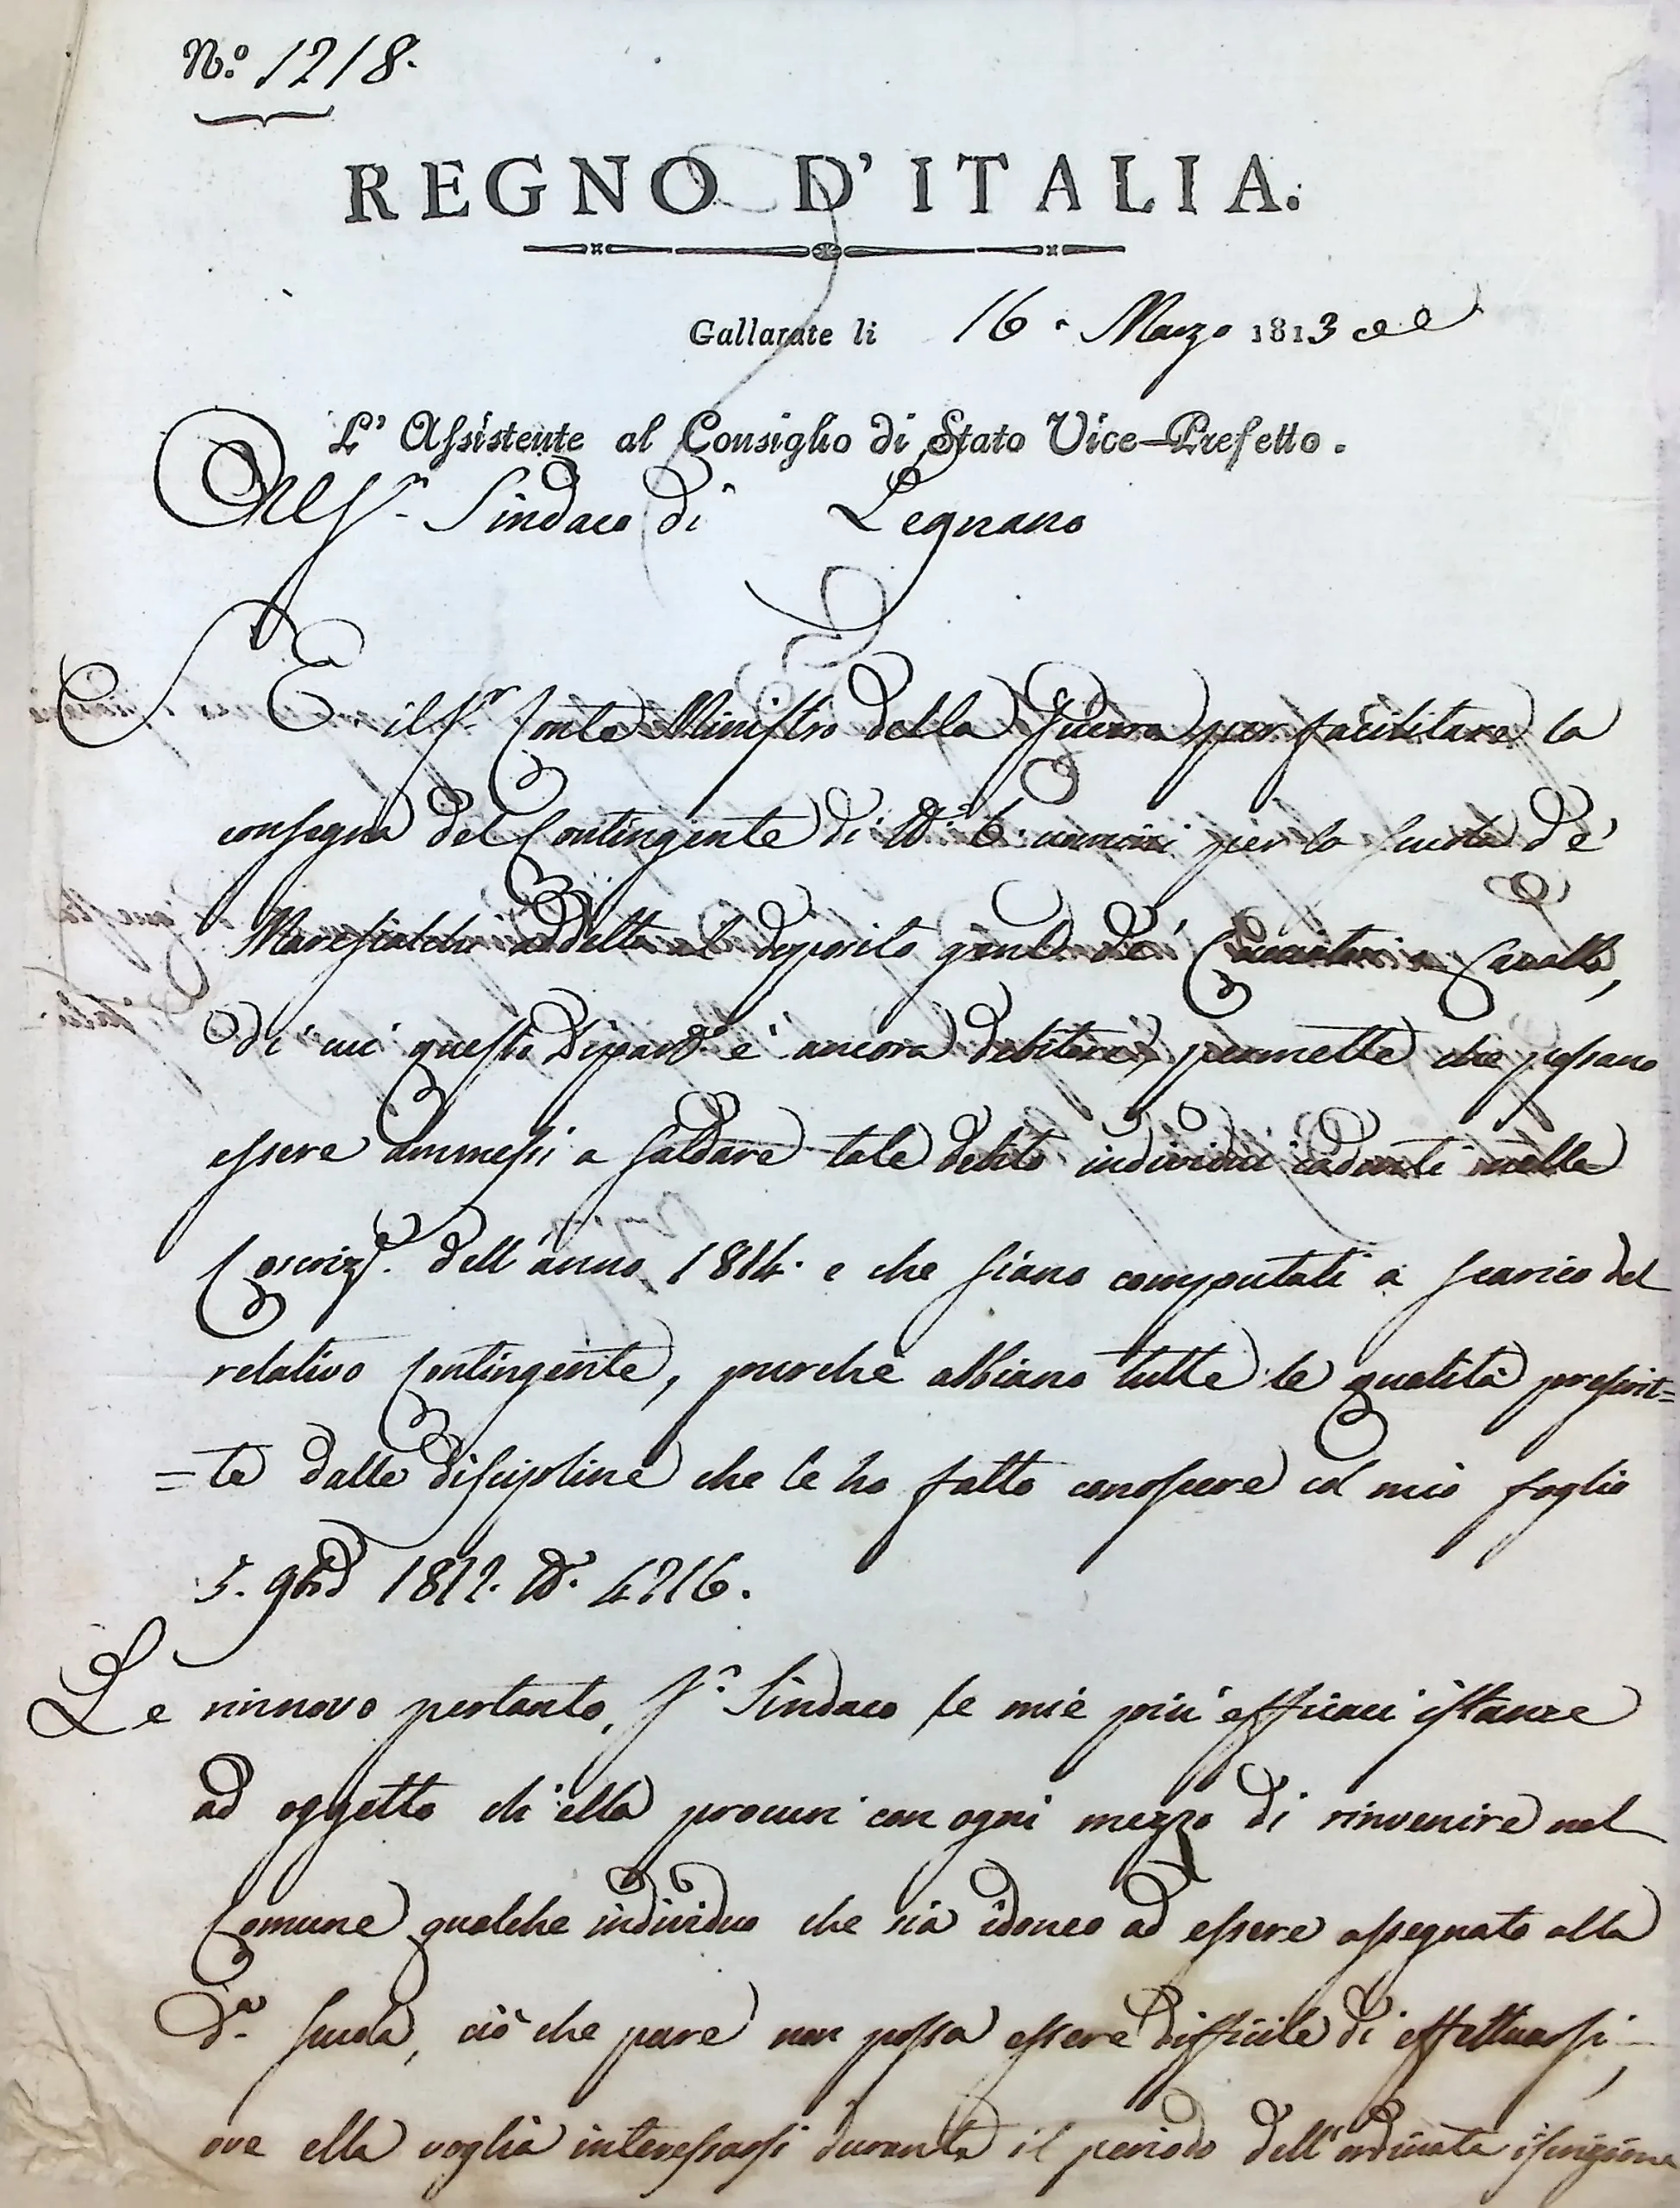 N.o 1218.
REGNO D'ITALIA.
Gallarate li 16. Marzo 1813
L'Assistente al Consiglio di Stato Vice-Prefetto.
Al Sr. Sindaco di Legnano
S E il Sr. Conte Ministro della Guerra per facilitare la
consegna del Contingente di N.o 6. uomini per la scuola de'
Marescialchi addetta al deposito genle. de' Cacciatori a Cavallo,
di cui questo Dipart.o è ancora debitore, permette che possano
essere ammessi a saldare tale debito individui cadenti nella
Coscrize. dell'anno 1814. e che siano computati a scarico del
relativo Contingente, purchè abbiano tutte le qualità prescrit=
=te dalle discipline che le ho fatto conoscere col mio foglio
5. 9bre 1812. N.o 4216.
Le rinnovo pertanto, Sr. Sindaco le mie più efficaci istanze
ad oggetto ch'ella procuri con ogni mezzo di rinvenire nel
Comune qualche individuo che sia idoneo ad essere assegnato alla
da. scuola, ciò che pare non possa essere difficile di effettuarsi,
ove ella voglia interessarsi durante il periodo dell'ordinata iscrizione